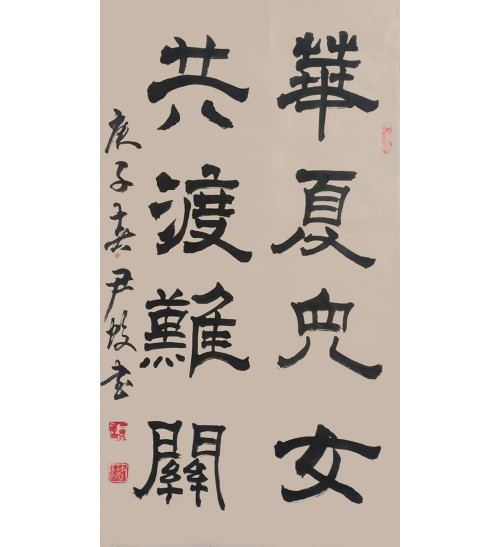 華夏兒女
共渡難關
庚子春尹書